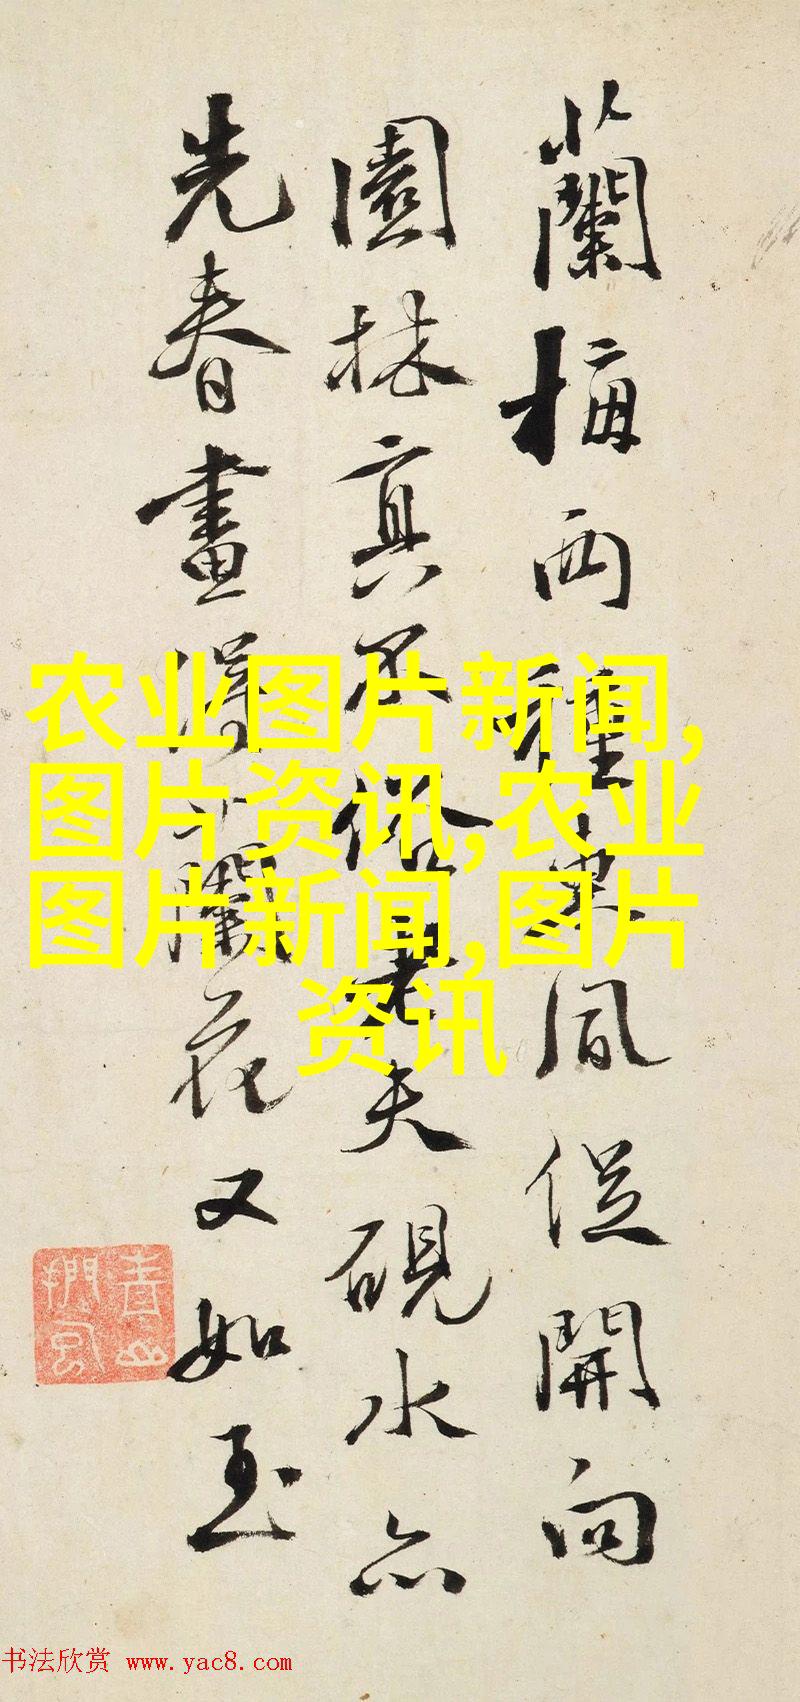 蘭梅两種東風促開向
園林真不俗老夫硯水亦
先春畫得蘭花又如玉
农业图片新闻,
图片资讯,农业
图片新闻,图片
资讯
书法欣赏 www.yac8.com